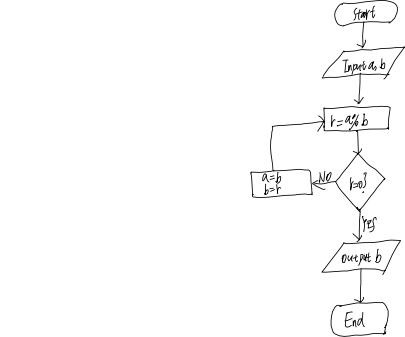 Start
Input a, b
r=a%b
r=0?
NO
a=b
b=r
Yes
output b
End